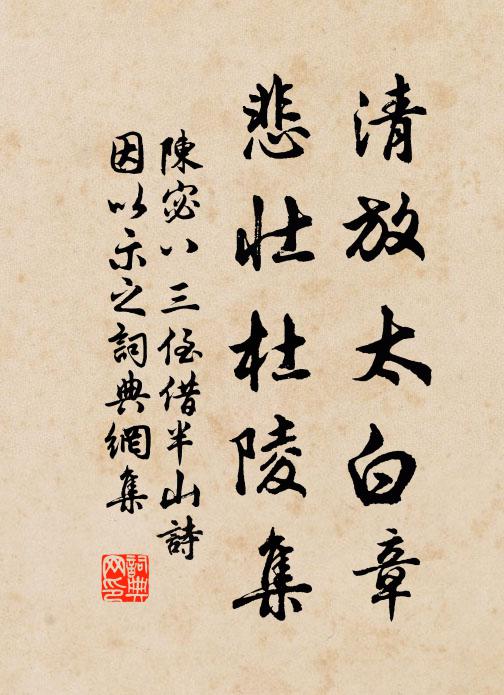 清放太白章
悲壯杜陵集
陳宓八三侄借半山詩
因以示之詞典網集
詞典
网印